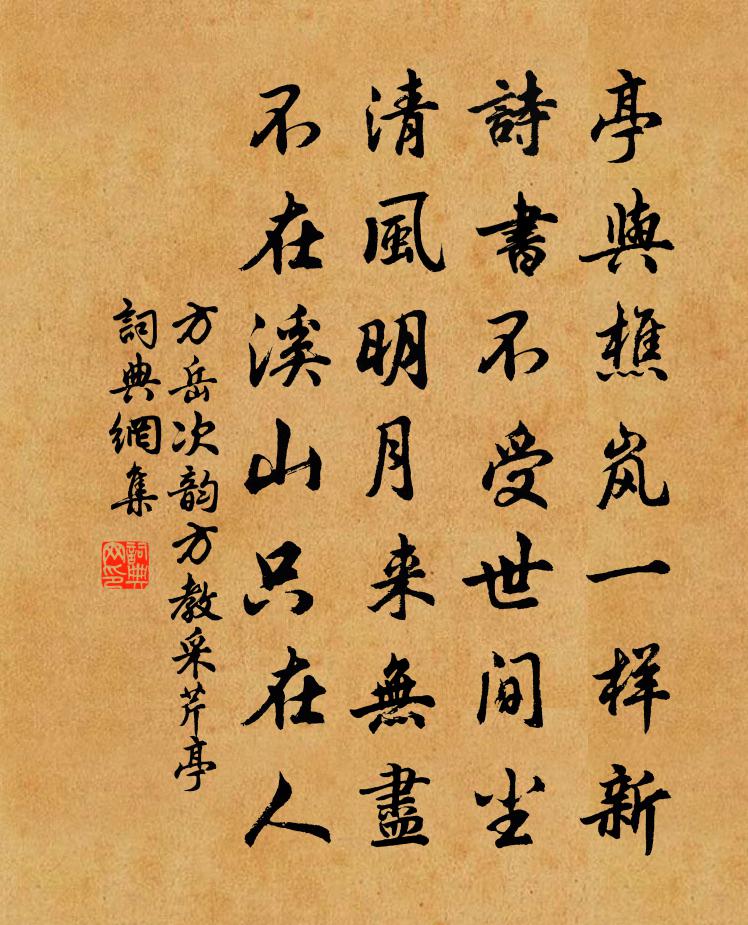 亭與樵岚一样新
詩書不受世間尘
清風明月来無盡
不在溪山只在人
方岳次韵方教采芹亭
詞典網集
詞典网印